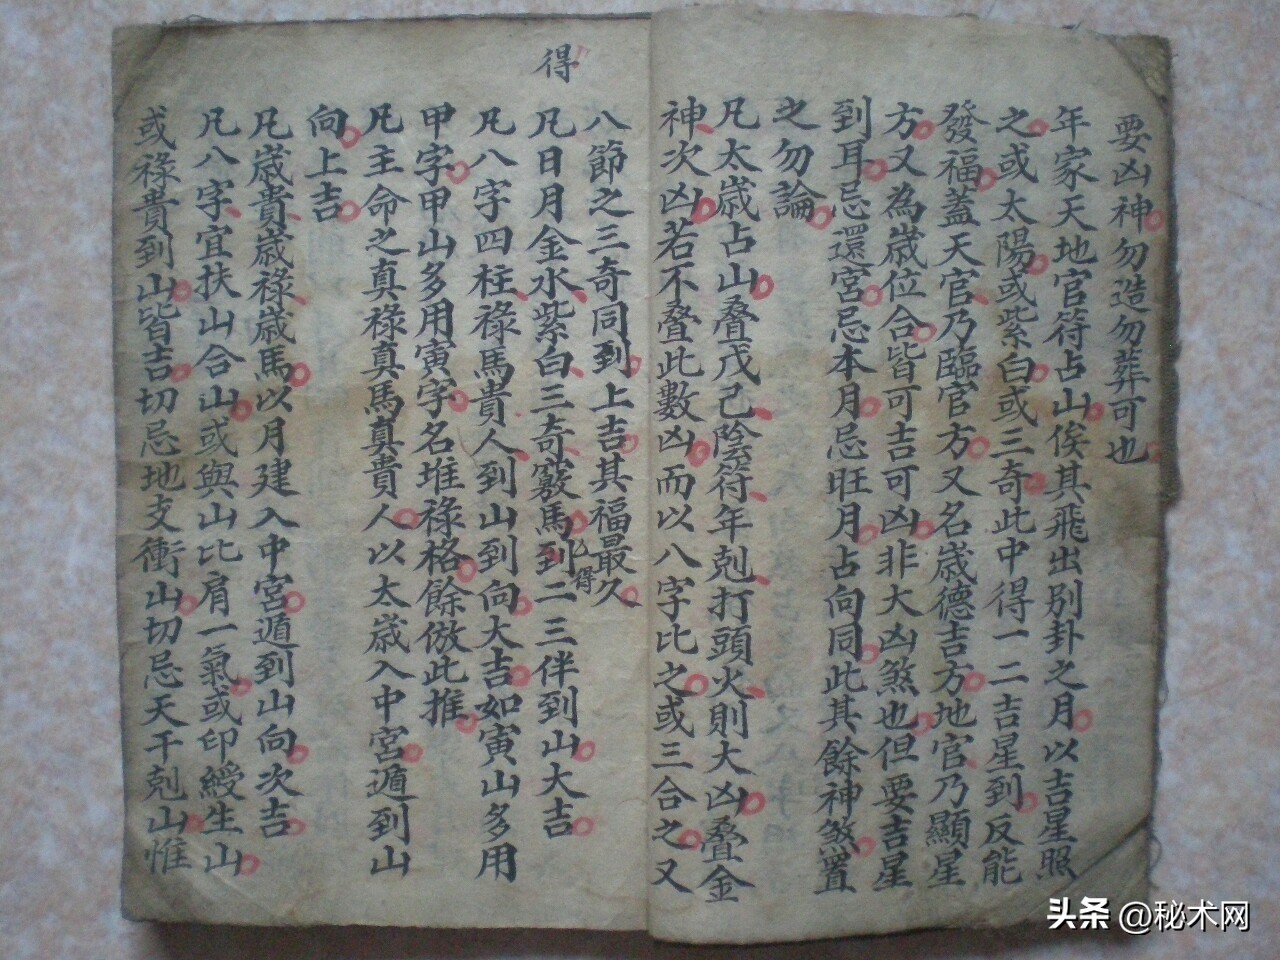 要凶神勿造勿葬可也
年家天地官符占山俟其飛出別卦之月以吉星照
之或太陽或紫白或三奇此中得一二吉星到反能
發福蓋天官乃臨官方又名歲德吉方地官乃顯星
方又為歲位合皆可吉可凶非大凶煞也但要吉星
到耳忌還宮忌本月忌旺月占向同此其餘神煞置
之勿論
凡太歲占山叠戊己陰符年剋打頭火則大凶叠金
神次凶若不叠此數凶而以八字比之或三合之又
得
八節之三奇同到上吉其福最久
凡日月金水紫白三奇竅馬到二三伴到山大吉
得
凡八字四柱祿馬貴人到山到向大吉如寅山多用
甲字甲山多用寅字名堆祿格餘倣此推
凡主命之真祿真馬真貴人以太歲入中宮遁到山
向上吉
凡歲貴歲祿歲馬以月建入中宮遁到山向次吉
凡八字宜扶山合山或與山比肩一氣或印綬生山
或祿貴到山皆吉切忌地支衝山切忌天干剋山惟
头条 @秘术网